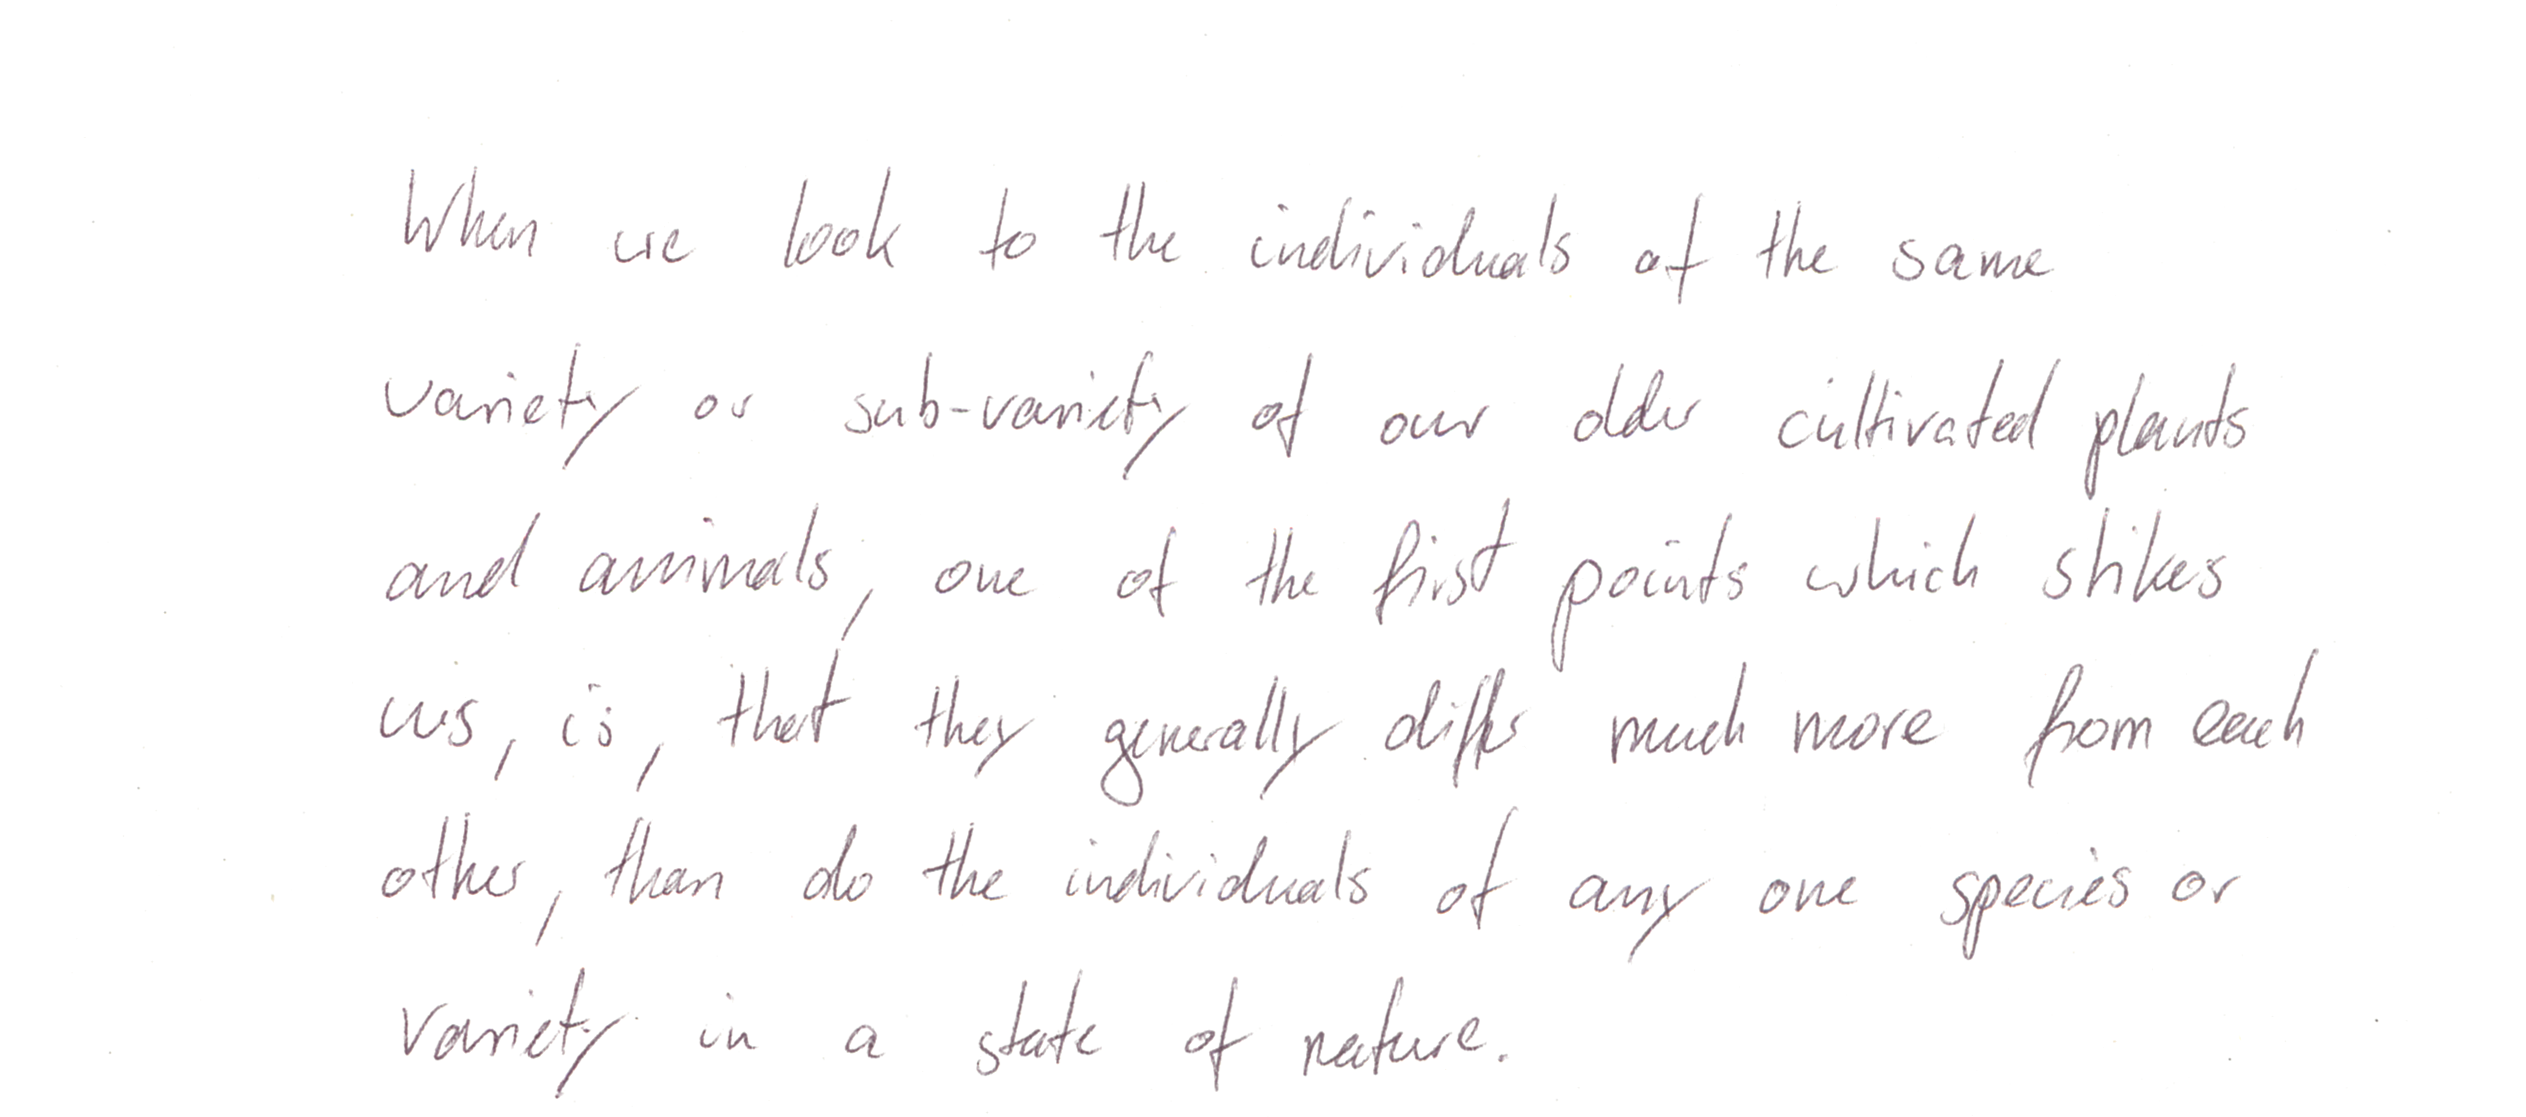 When we look to the individuals of the same
variety or sub-variety of our older cultivated plants
and animals, one of the first points which strikes
us, is, that they generally differ much more from each
other, than do the individuals of any one species or
variety in a state of nature.